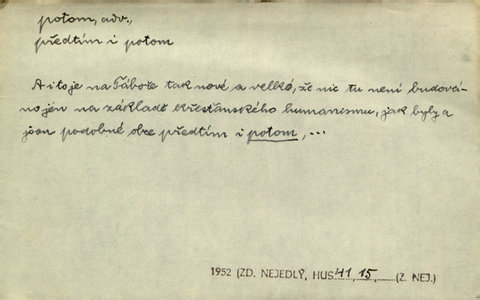 potom, adv.,
předtím i potom
A i to je na Táboře tak nové a velké, že nic tu není budová-
no jen na základě křesťanského humanismu, jak byly a
jsou podobné obce předtím i potom, ...
1952 (ZD. NEJEDLÝ, HUS 41, 15, (Z. NEJ.)